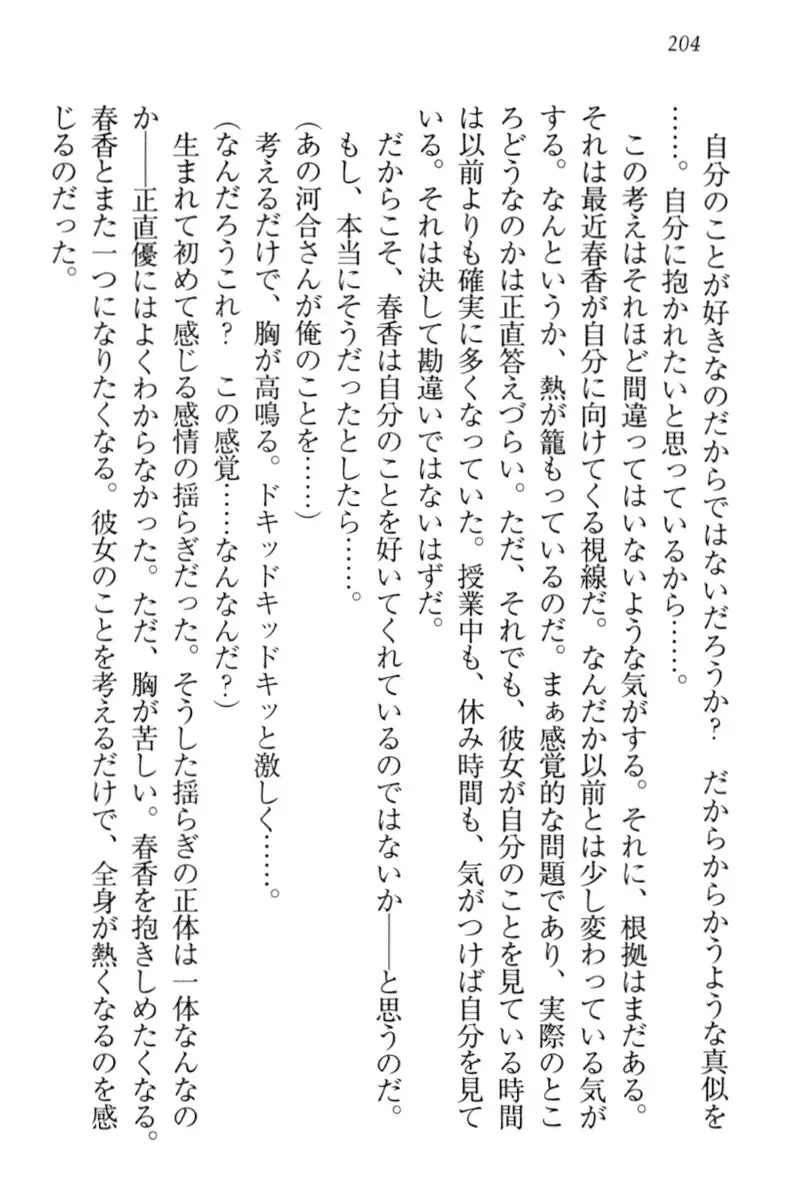 204
自分のことが好きなのだからではないだろうか？　だからからかうような真似を
……。自分に抱かれたいと思っているから……。
この考えはそれほど間違ってはいないような気がする。それに、根拠はまだある。
それは最近春香が自分に向けてくる視線だ。なんだか以前とは少し変わっている気が
する。なんというか、熱が籠もっているのだ。まぁ感覚的な問題であり、実際のとこ
ろどうなのかは正直答えづらい。ただ、それでも、彼女が自分のことを見ている時間
は以前よりも確実に多くなっていた。授業中も、休み時間も、気がつけば自分を見て
いる。それは決して勘違いではないはずだ。
だからこそ、春香は自分のことを好いてくれているのではないか――と思うのだ。
もし、本当にそうだったとしたら……。
（あの河合さんが俺のことを……）
考えるだけで、胸が高鳴る。ドキッドキッドキッと激しく……。
（なんだろうこれ？　この感覚……なんなんだ？）
生まれて初めて感じる感情の揺らぎだった。そうした揺らぎの正体は一体なんなの
か――正直優にはよくわからなかった。ただ、胸が苦しい。春香を抱きしめたくなる。
春香とまた一つになりたくなる。彼女のことを考えるだけで、全身が熱くなるのを感
じるのだった。